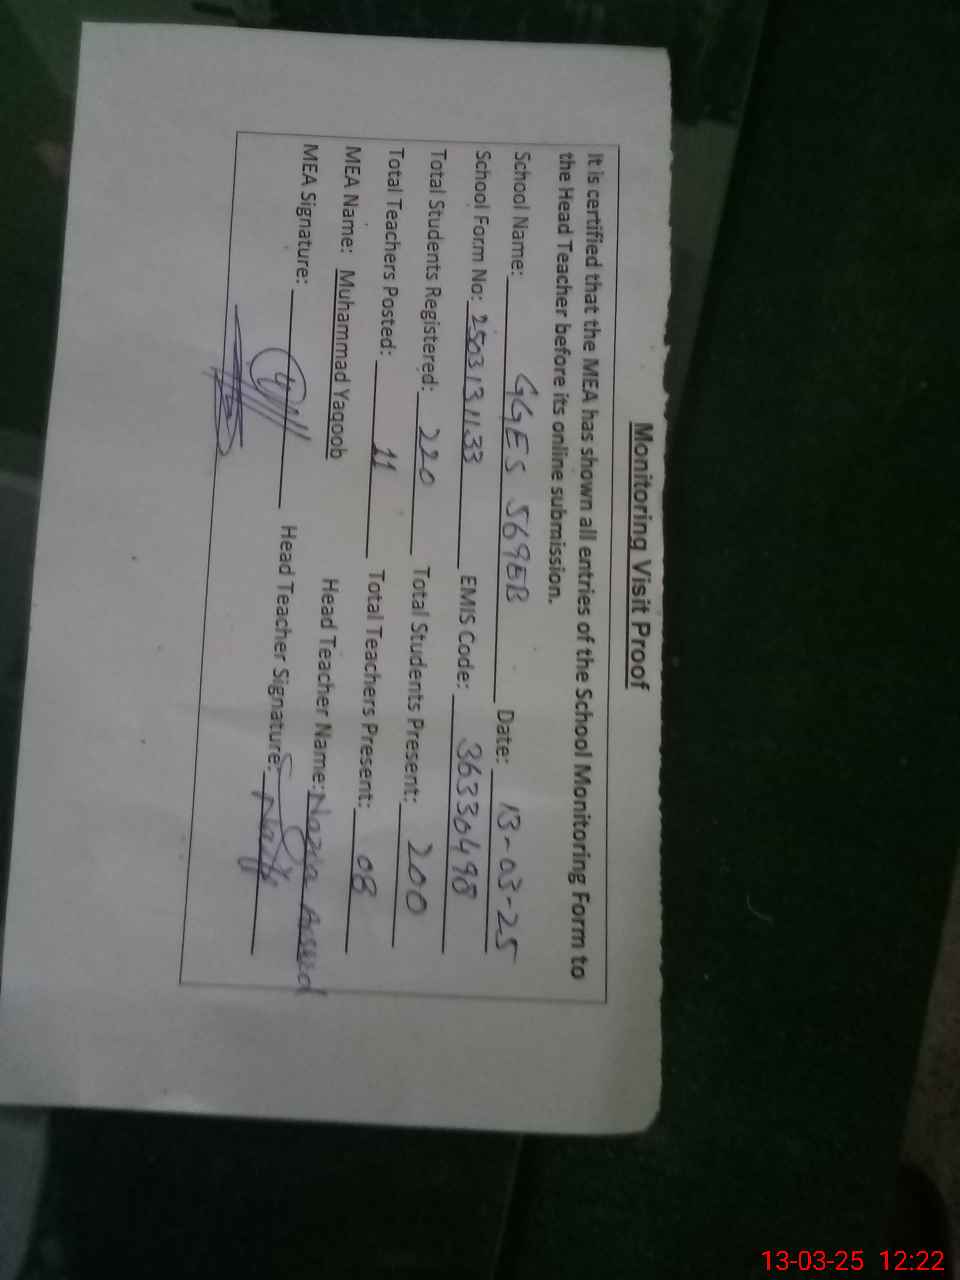 Monitoring Visit Proof
It is certified that the MEA has shown all entries of the School Monitoring Form to
the Head Teacher before its online submission.
School Name: GGES 569EB Date: 13-03-25
School Form No: 2503131133 EMIS Code: 36330498
Total Students Registered: 220 Total Students Present: 200
Total Teachers Posted: 11 Total Teachers Present: 08
MEA Name: Muhammad Yaqoob Head Teacher Name: Nazia
MEA Signature: Head Teacher Signature:
13-03-25 12:22